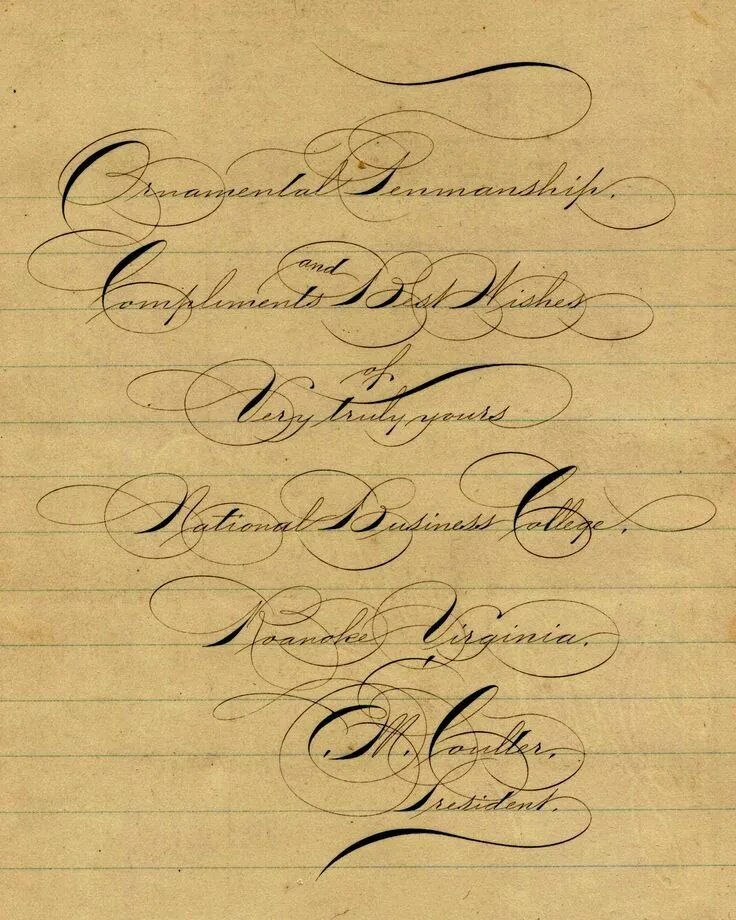 Ornamental Penmanship.
Compliments and Best Wishes
of
Very truly yours
National Business College,
Roanoke Virginia.
E. M. Coulter,
President.